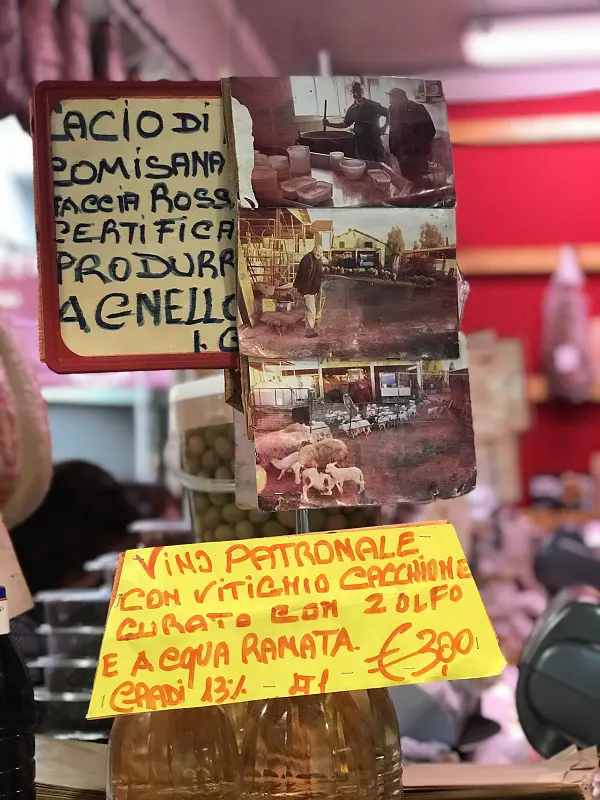 CACIO DI
COMISANA
FACCIA ROSS
CERTIFICA
PRODURR
AGNELLO
I.G
VINO PATRONALE
CON VITIGNIO CACCHIONE
CURATO CON ZOLFO
E ACQUA RAMATA.
€ 3,00
GRADI 13% LT 1